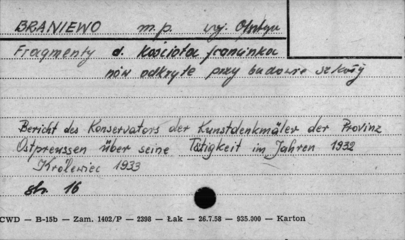 BRANIEWO m.p. wj. Olsztyn
Fragmenty d. kościoła franciszka
nów odkryte przy budowie szkoły
Bericht des Konservators der Kunstdenkmäler der Provinz
Ostpreussen über seine Tätigkeit im Jahren 1932
Królewiec 1933
str. 16
CWD — B-15b — Zam. 1402/P — 2398 — Łak — 26.7.58 — 935.000 — Karton